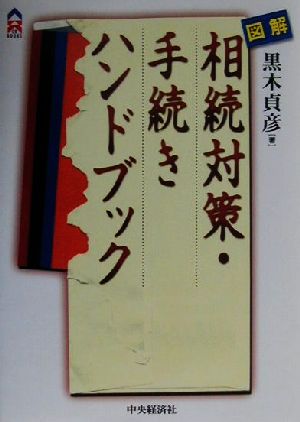 図解
相続対策・
手続き
ハンドブック
黒木貞彦[著]
中央経済社